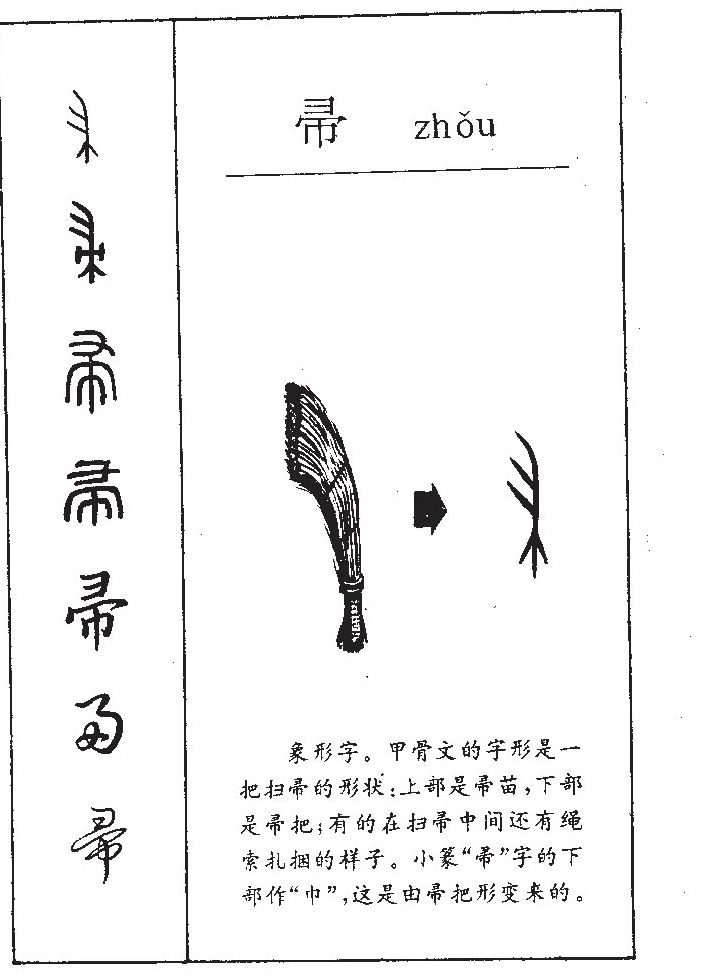 帚 zhǒu
象形字。甲骨文的字形是一
把扫帚的形状:上部是帚苗,下部
是帚把;有的在扫帚中间还有绳
索扎捆的样子。小篆“帚”字的下
部作“巾”,这是由帚把形变来的。
帚
帚
帚
帚
帚
帚
帚